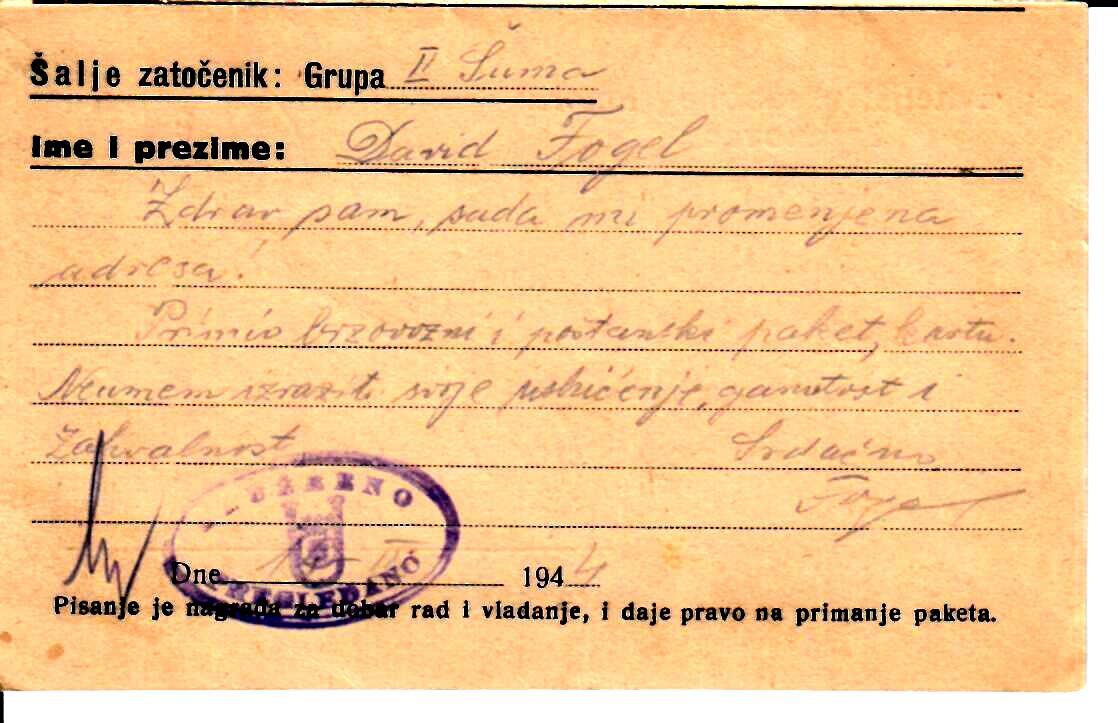 Šalje zatočenik: Grupa II Šuma
Ime i prezime: David Fogel
Zdrav sam, sada mi promenjena
adresa!
Primio brzovozni i poštanski paket, kartu.
Neumem izraziti svoje ushićenje, ganutost i
zahvalnost Srdačno
Fogel
UREĐENO
Dne 1944
PREGLEDANO
Pisanje je nagrada za dobar rad i vladanje, i daje pravo na primanje paketa.